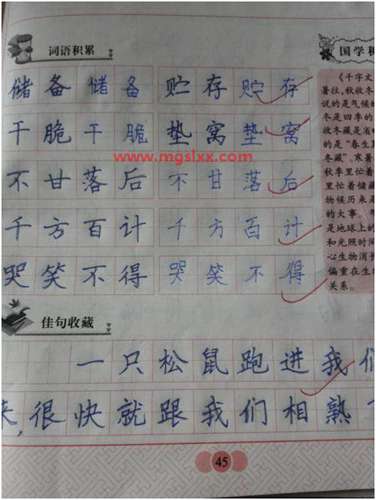 词语积累
国学
储备 储备 贮存 贮存
干脆 干脆 垫窝 垫窝
www.mgslxx.com
不甘落后 不甘落后
千方百计 千方百计
哭笑不得 哭笑不得
《千字文
暑往，秋收冬
说的是气候
冬是四季的
收冬藏是
的是“春生
冬藏”，寒暑
秋季里忙着
里忙着储藏
物候历来是
的大事。
是地球上的
和光照时间
心生物消长
偏重在生
关系。
佳句收藏
一只松鼠跑进我们
来，很快就跟我们相熟
45